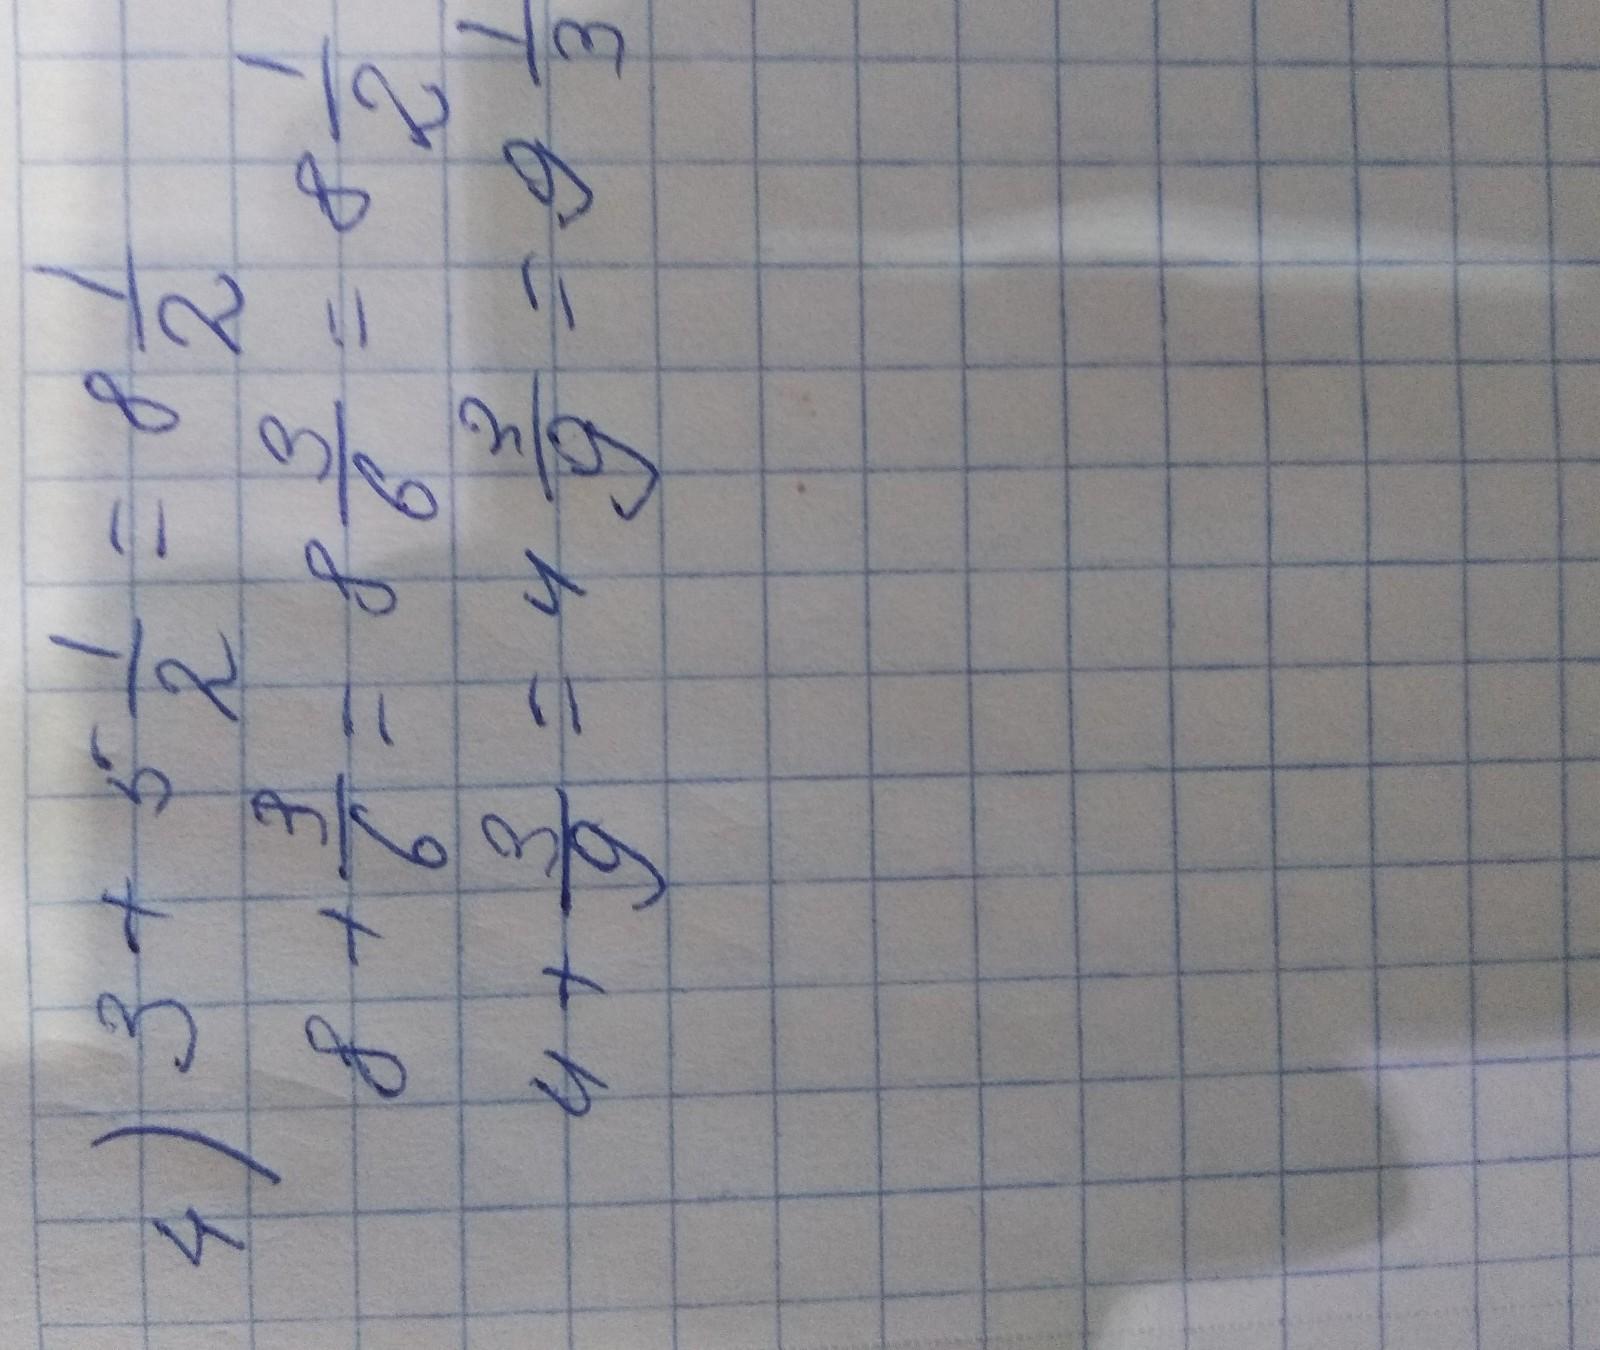 4) 3 + 5 1/2 = 8 1/2
8 + 3/6 = 8 3/6 = 8 1/2
4 + 3/9 = 4 3/9 = 9 1/3